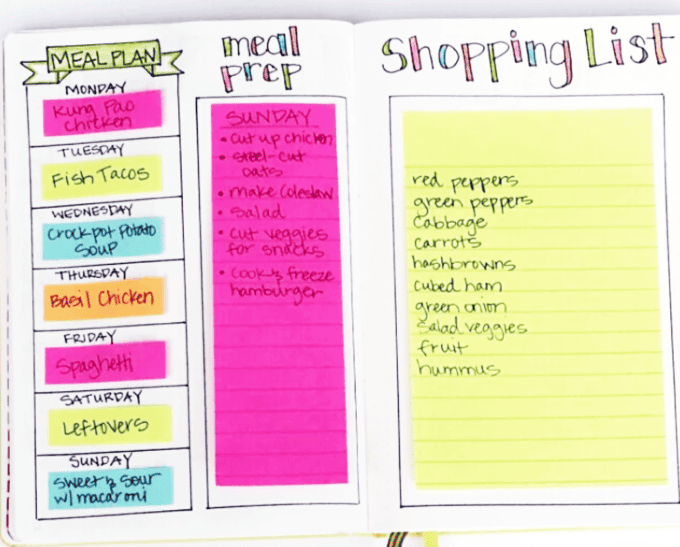 MEAL PLAN
MONDAY
Kung Pao
Chicken
TUESDAY
Fish Tacos
WEDNESDAY
Crockpot Potato
Soup
THURSDAY
Basil Chicken
FRIDAY
Spaghetti
SATURDAY
Leftovers
SUNDAY
Sweet & Sour
w/ macaroni
meal
prep
SUNDAY
• cut up chicken
• steel-cut
oats
• make Coleslaw
• salad
• cut veggies
for snacks
• cook & freeze
hamburger
Shopping List
red peppers
green peppers
Cabbage
carrots
hashbrowns
cubed ham
green onion
salad veggies
fruit
hummus